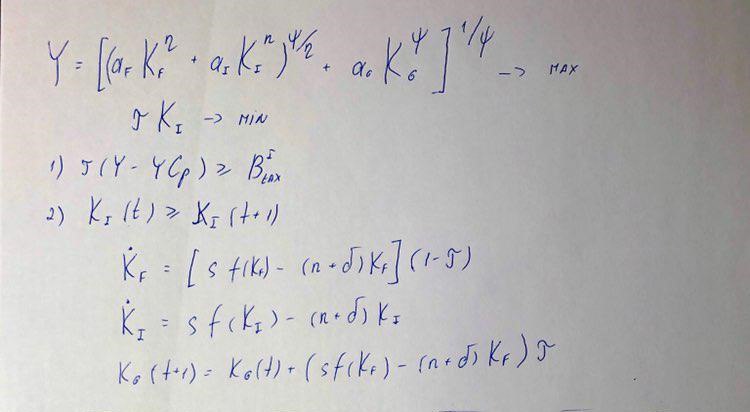 Y = [(a_F K_F^η + a_I K_I^η)^ψ/η + a_G K_G^ψ]^1/ψ → MAX
τ K_I → MIN
1) τ(Y - YCp) ≥ B_tax^I
2) K_I (t) ≥ K_I (t+1)
K̇_F = [s f(K_F) - (n+δ)K_F](1-τ)
K̇_I = s f(K_I) - (n+δ)K_I
K_G (t+1) = K_G(t) + (s f(K_F) - (n+δ)K_F)τ